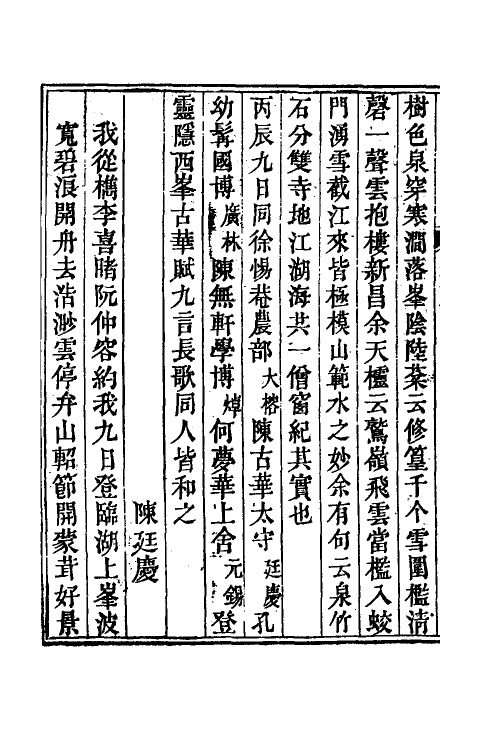 樹色泉穿寒澗落峯陰陸棻云修篁千个雪圍檻清
磬一聲雲抱樓新昌余天櫺云鷲嶺飛雲當檻入蛟
門湧雪截江來皆極模山範水之妙余有句云泉竹
石分雙寺地江湖海共一僧窗紀其實也
丙辰九日同徐惕菴農部大榕陳古華太守廷慶孔
幼髯國博廣林陳無軒學博焯何夢華上舍元錫登
靈隱西峯古華賦九言長歌同人皆和之
陳廷慶
我從檇李喜睹阮仲容約我九日登臨湖上峯波
寬碧浪開舟去浩渺雲停弁山軺節開蒙茸好景